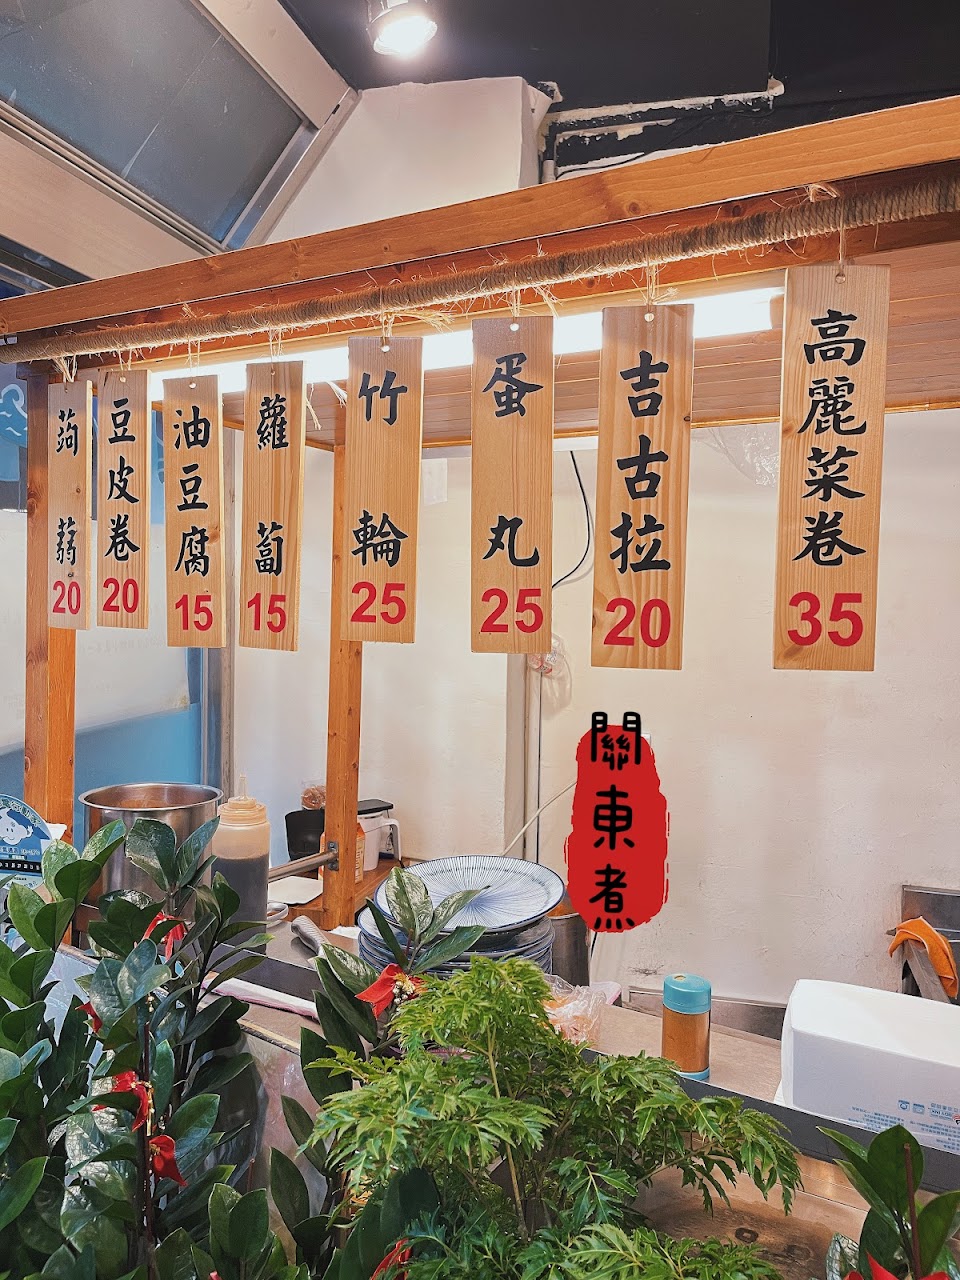 高麗菜卷
35
吉古拉
20
蛋丸
25
竹輪
25
蘿蔔
15
油豆腐
15
豆皮卷
20
蒟蒻
20
關東煮